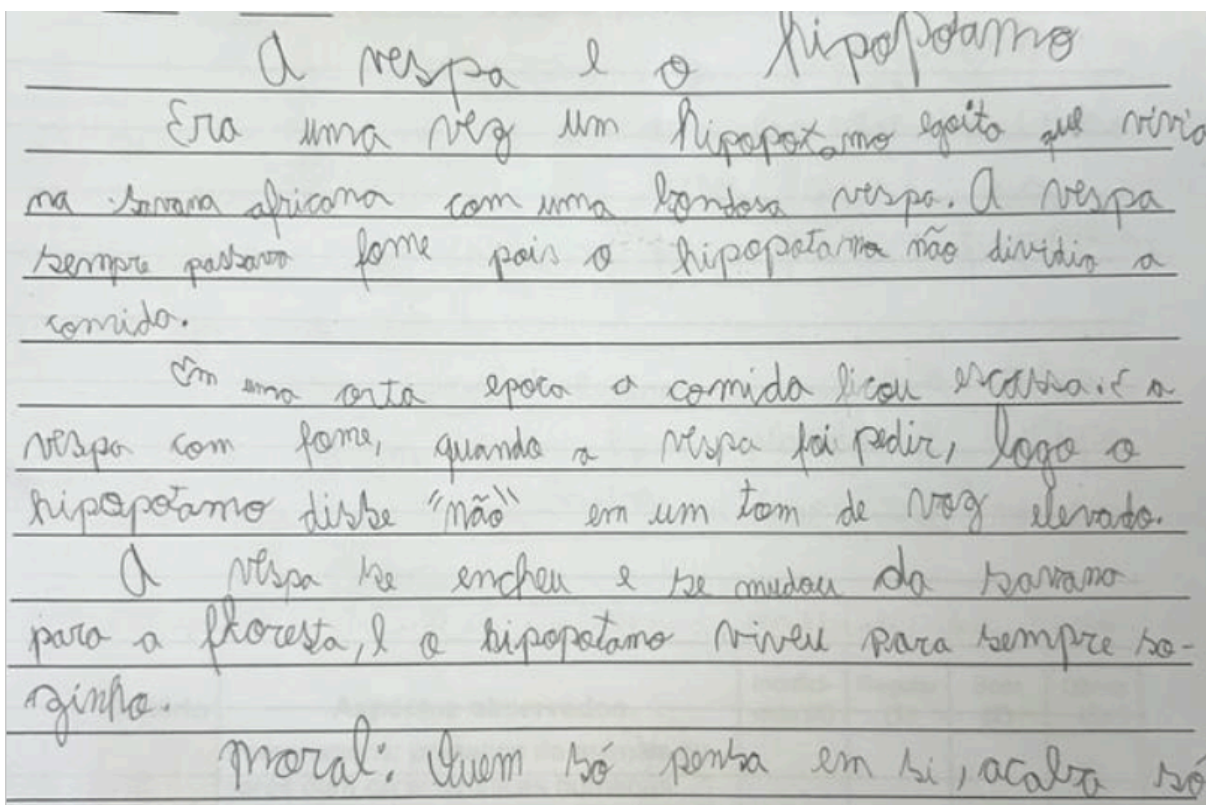 A vespa e o hipopotamo
Era uma vez um hipopotamo egoita que vivia
na savana africana com uma bondosa vespa. A vespa
sempre passava fome pois o hipopotamo não dividia a
comida.
Em uma certa epoca a comida ficou escassa. E a
vespa com fome, quando a vespa foi pedir, logo o
hipopotamo disse "não" em um tom de voz elevado.
A vespa se encheu e se mudou da savana
para a floresta, e o hipopotamo viveu para sempre so-
zinho.
Moral: Quem só pensa em si, acaba só